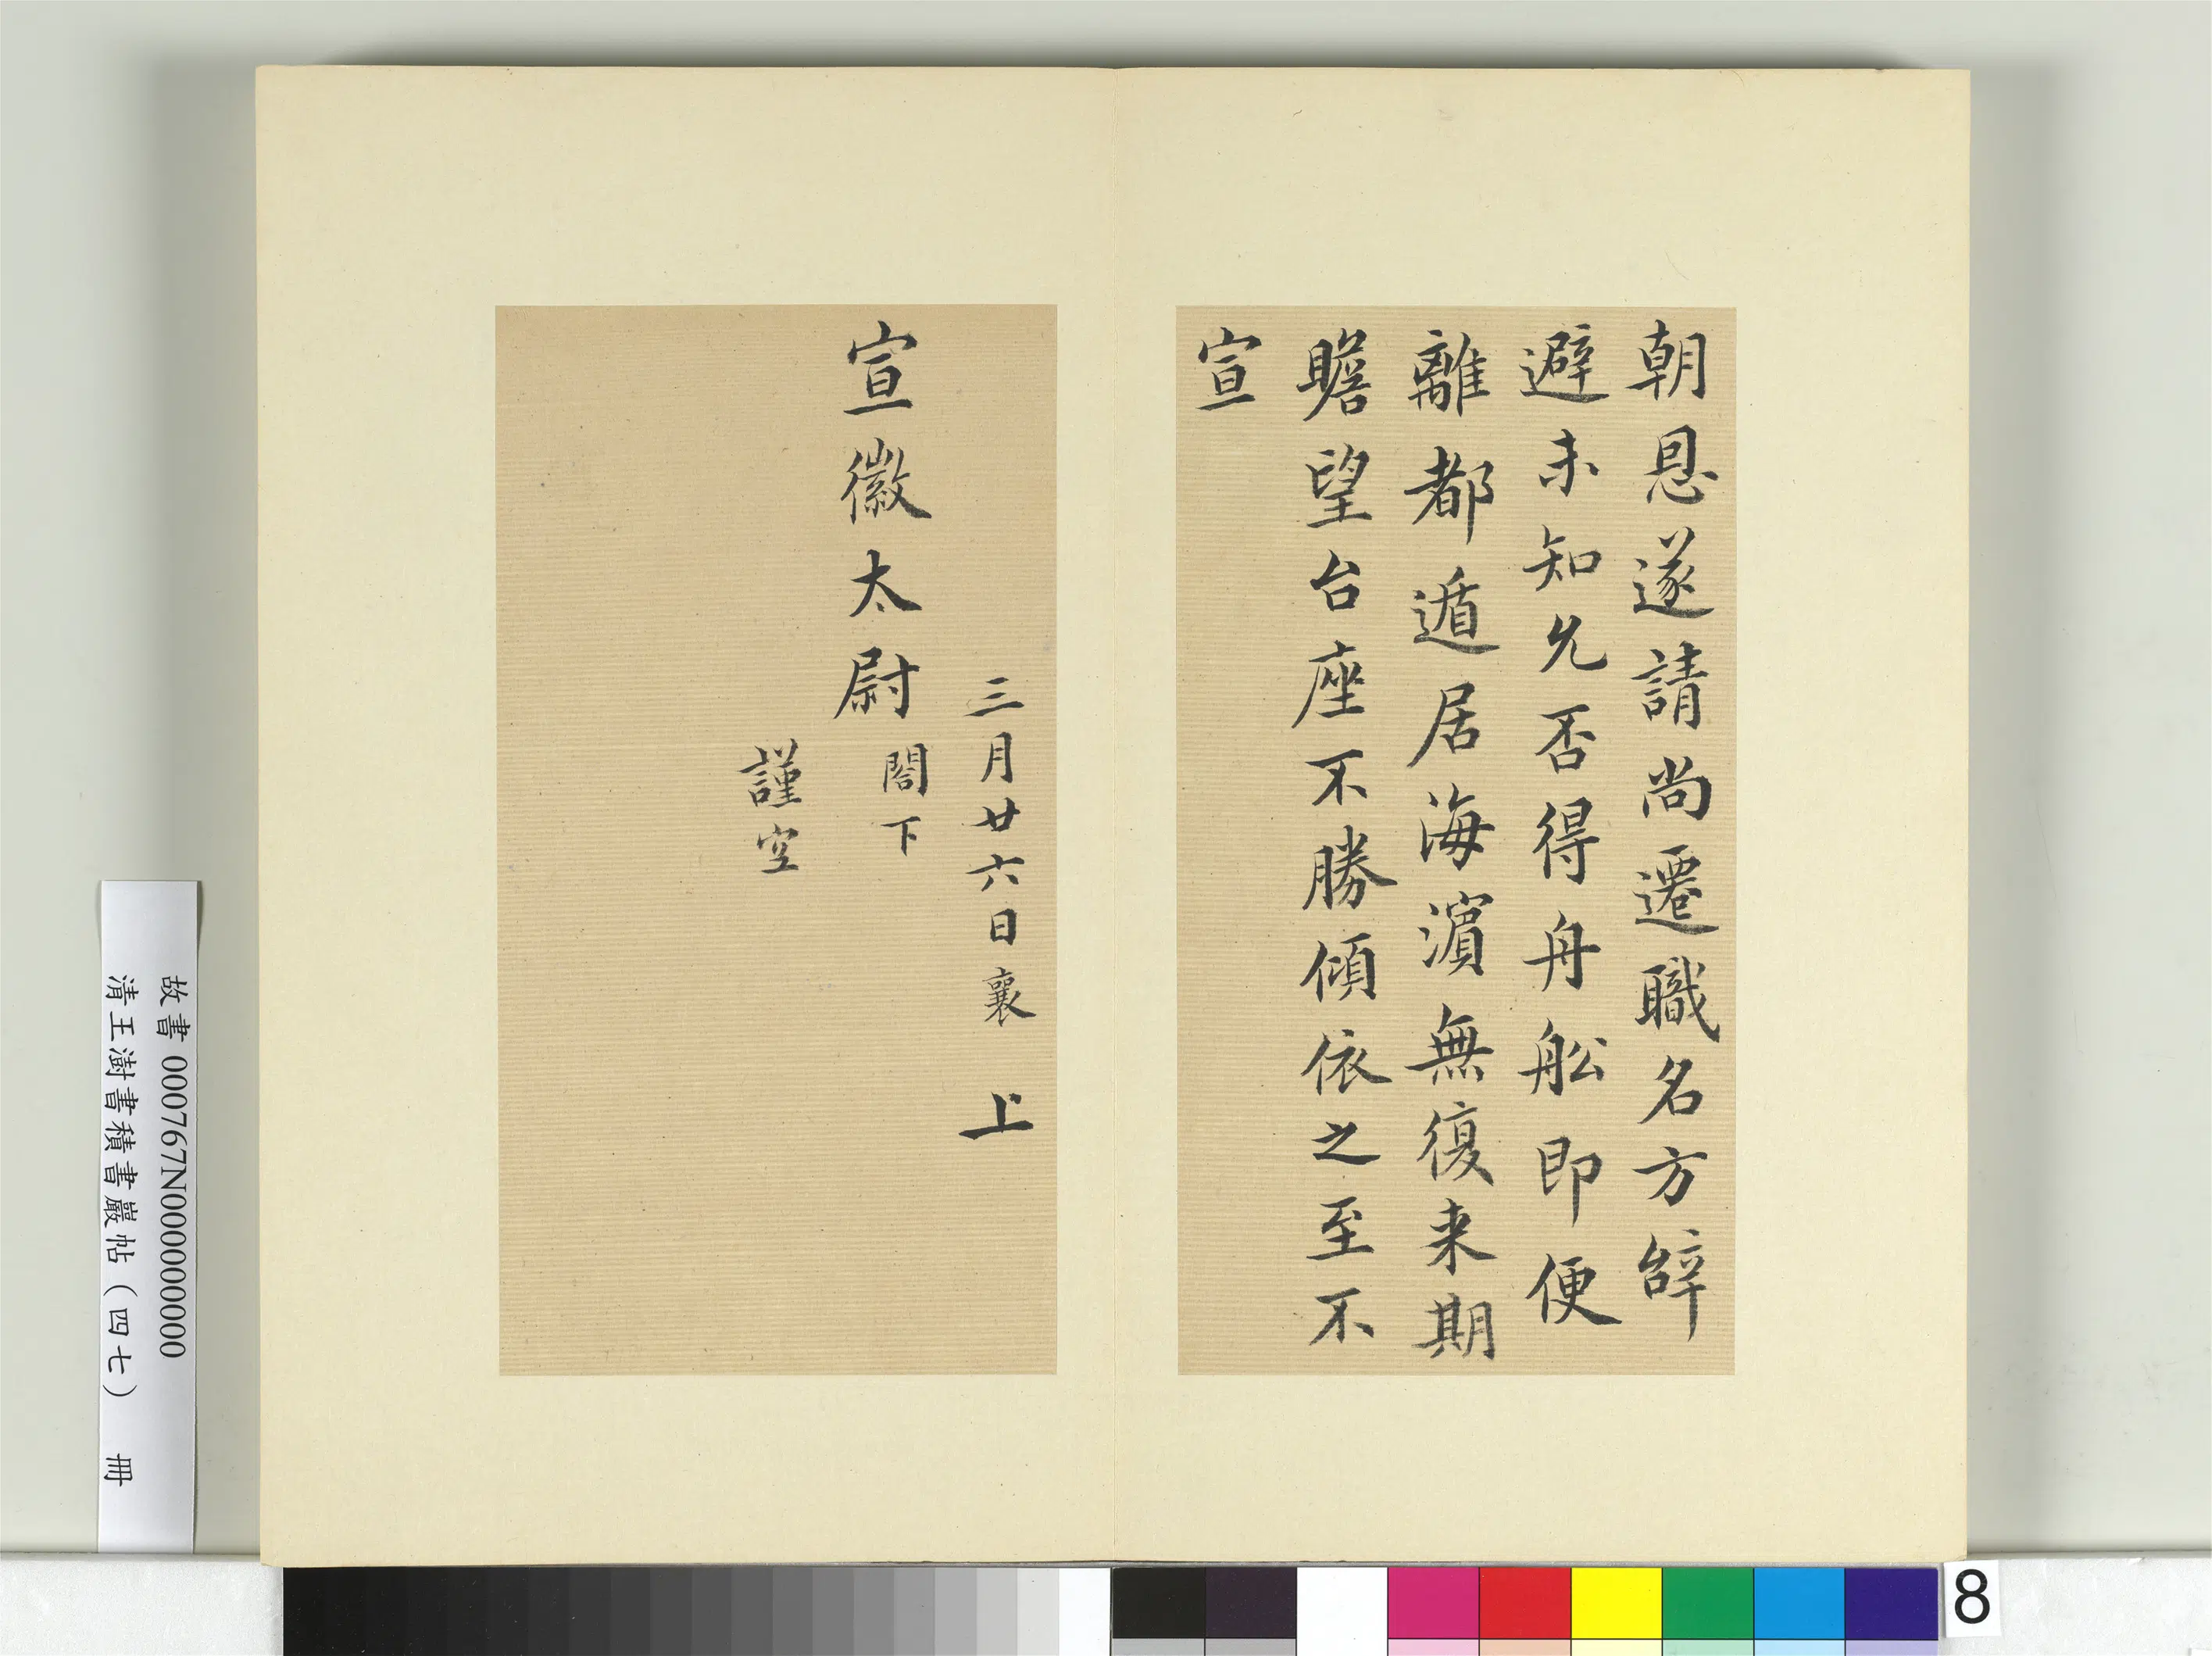 朝恩遂請尚遷職名方辝
避未知允否得舟舩即便
離都遁居海濵無復来期
瞻望台座不勝傾依之至不
宣
三月廿六日襄 上
宣徽太尉 閤下
謹空
故書 000767N000000000
清王澍書積書巖帖（四七） 冊
8